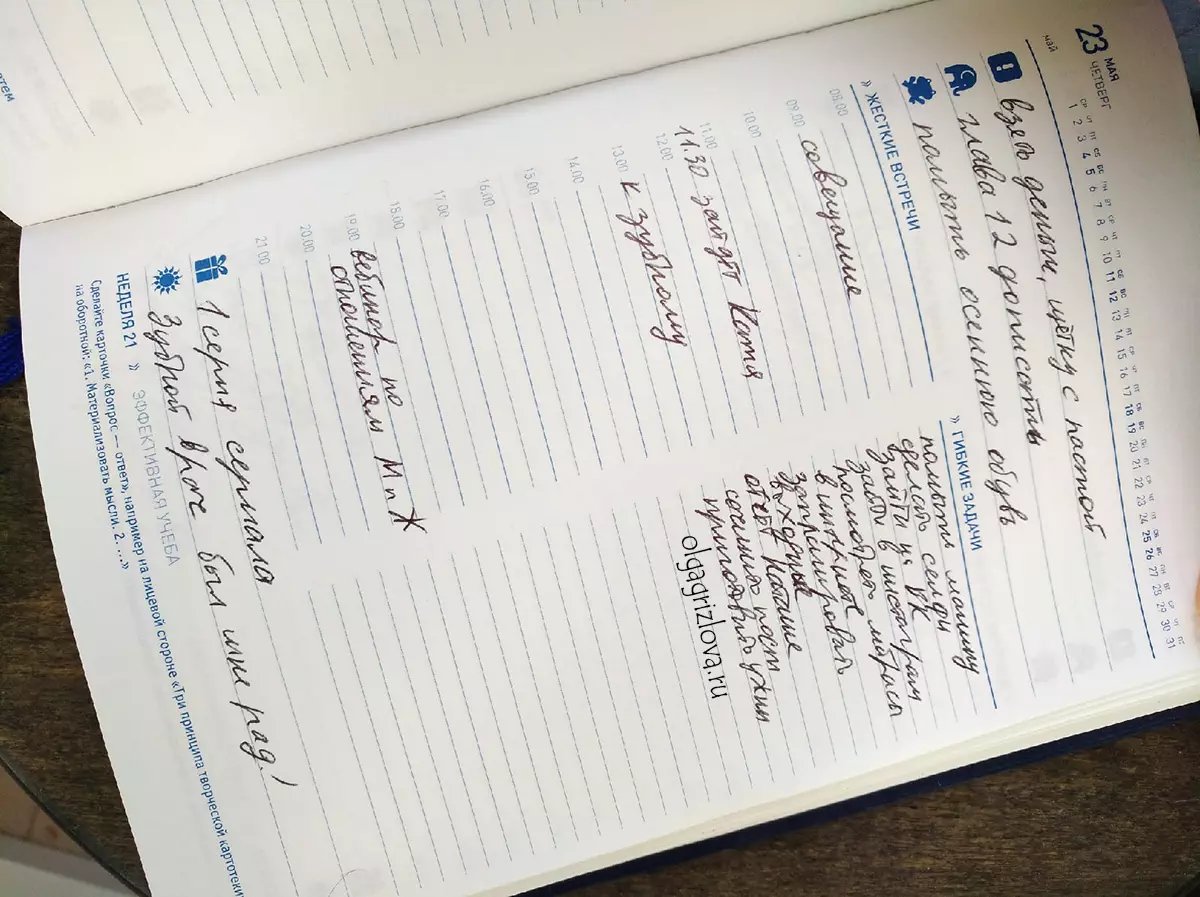 23 МАЯ
ЧЕТВЕРГ
май
СР ЧТ ПТ СБ ВС ПН ВТ СР ЧТ ПТ СБ ВС ПН ВТ СР ЧТ ПТ СБ ВС ПН ВТ СР ЧТ ПТ СБ ВС ПН ВТ СР ЧТ ПТ
1 2 3 4 5 6 7 8 9 10 11 12 13 14 15 16 17 18 19 20 21 22 23 24 25 26 27 28 29 30 31
взять деньги, щётку с пастой
глава 12 дописать
помыть осеннюю обувь
» ЖЕСТКИЕ ВСТРЕЧИ
08.00
09.00 совещание
10.00
11.00
11.30 зайдёт Катя
12.00
13.00 к зубному
14.00
15.00
16.00
17.00
18.00
19.00 вебинар по
отношениям М и Ж
20.00
21.00
» ГИБКИЕ ЗАДАЧИ
помыть машину
сделать селфи
зайти в ВК
зайти в инстаграм
посмотреть
в интернете
отчёт Наташе
сочинить пост
приготовить ужин
olgagrizlova.ru
1 серия сериала
Зубной врач был мне рад!
НЕДЕЛЯ 21 » ЭФФЕКТИВНАЯ УЧЕБА
Сделайте карточки «Вопрос — ответ», например на лицевой стороне «Три принципа творческой картотеки
на оборотной: «1. Материализовать мысли. 2. ...»